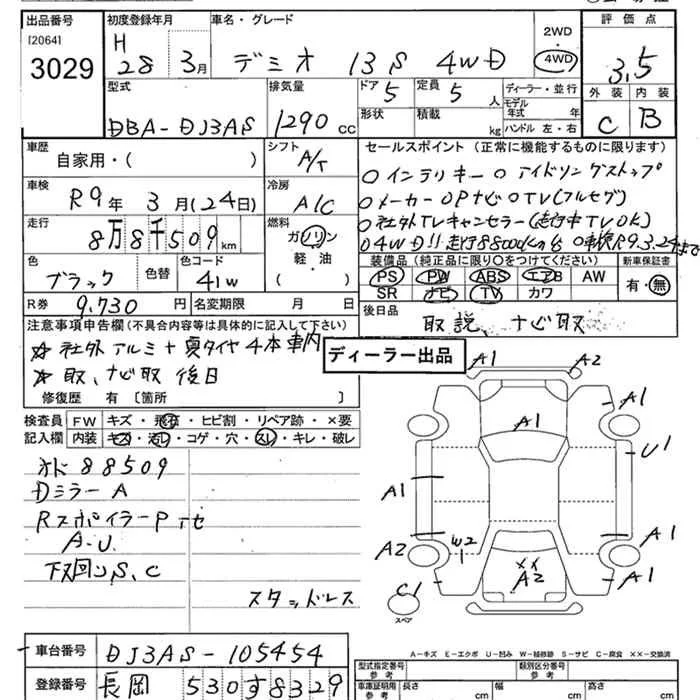 出品番号 初度登録年月 車名・グレード 評価点
[2064] H 2WD
3029 28 3月 デミオ 13S 4WD 4WD 3.5
型式 排気量 ドア 5 定員 5 人 ディーラー・並行 外装 内装
DBA-DJ3AS 1290 cc 形状 積載 kg モデル年式 年 ハンドル 左・右 C B
車歴 シフト セールスポイント (正常に機能するものに限ります)
自家用・( ) A/T ○インテリキー ○アイドリングストップ
車検 冷房 ○メーカーOPナビ○TV(フルセグ)
R9年 3月(24日) A/C ○社外TVキャンセラー(走行中TVOK)
走行 燃料 ○4WD!!走行88000km台 ○車検R9.3.24まで
8万8千509km ガソリン 装備品 (純正品に限り○をつけてください) 新車保証書
色 色替 色コード 軽・油 PS PW ABS エアB AW 有・無
ブラック 41W ( ) SR ナビ TV カワ
R券 9,730円 名変期限 月 日 後日品
注意事項申告欄(不具合内容等は具体的に記入して下さい) 取説、ナビ取
☆社外アルミ+夏タイヤ4本車内 ディーラー出品
☆取、ナビ取 後日
修復歴 有〔箇所 〕
検査員 FW キズ・飛石・ヒビ割・リペア跡・×要
記入欄 内装 キズ・汚レ・コゲ・穴・スレ・キレ・破レ
オド 88509
Dミラー A
RスポイラーP
A.U
下回りS、C
スタッドレス
A1 A2
A1
A1
U1
A1
A2 W2 A1
××
A2 A1
C1
スペア
A-キズ E-エクボ U-凹み W-補修跡 S-サビ C-腐食 ××-交換済
車台番号 DJ3AS-105454
登録番号 長岡 530す8329
型式指定番号 参考 類別区分番号 参考
車庫証明用 参考 長さ cm 幅 cm 高さ cm